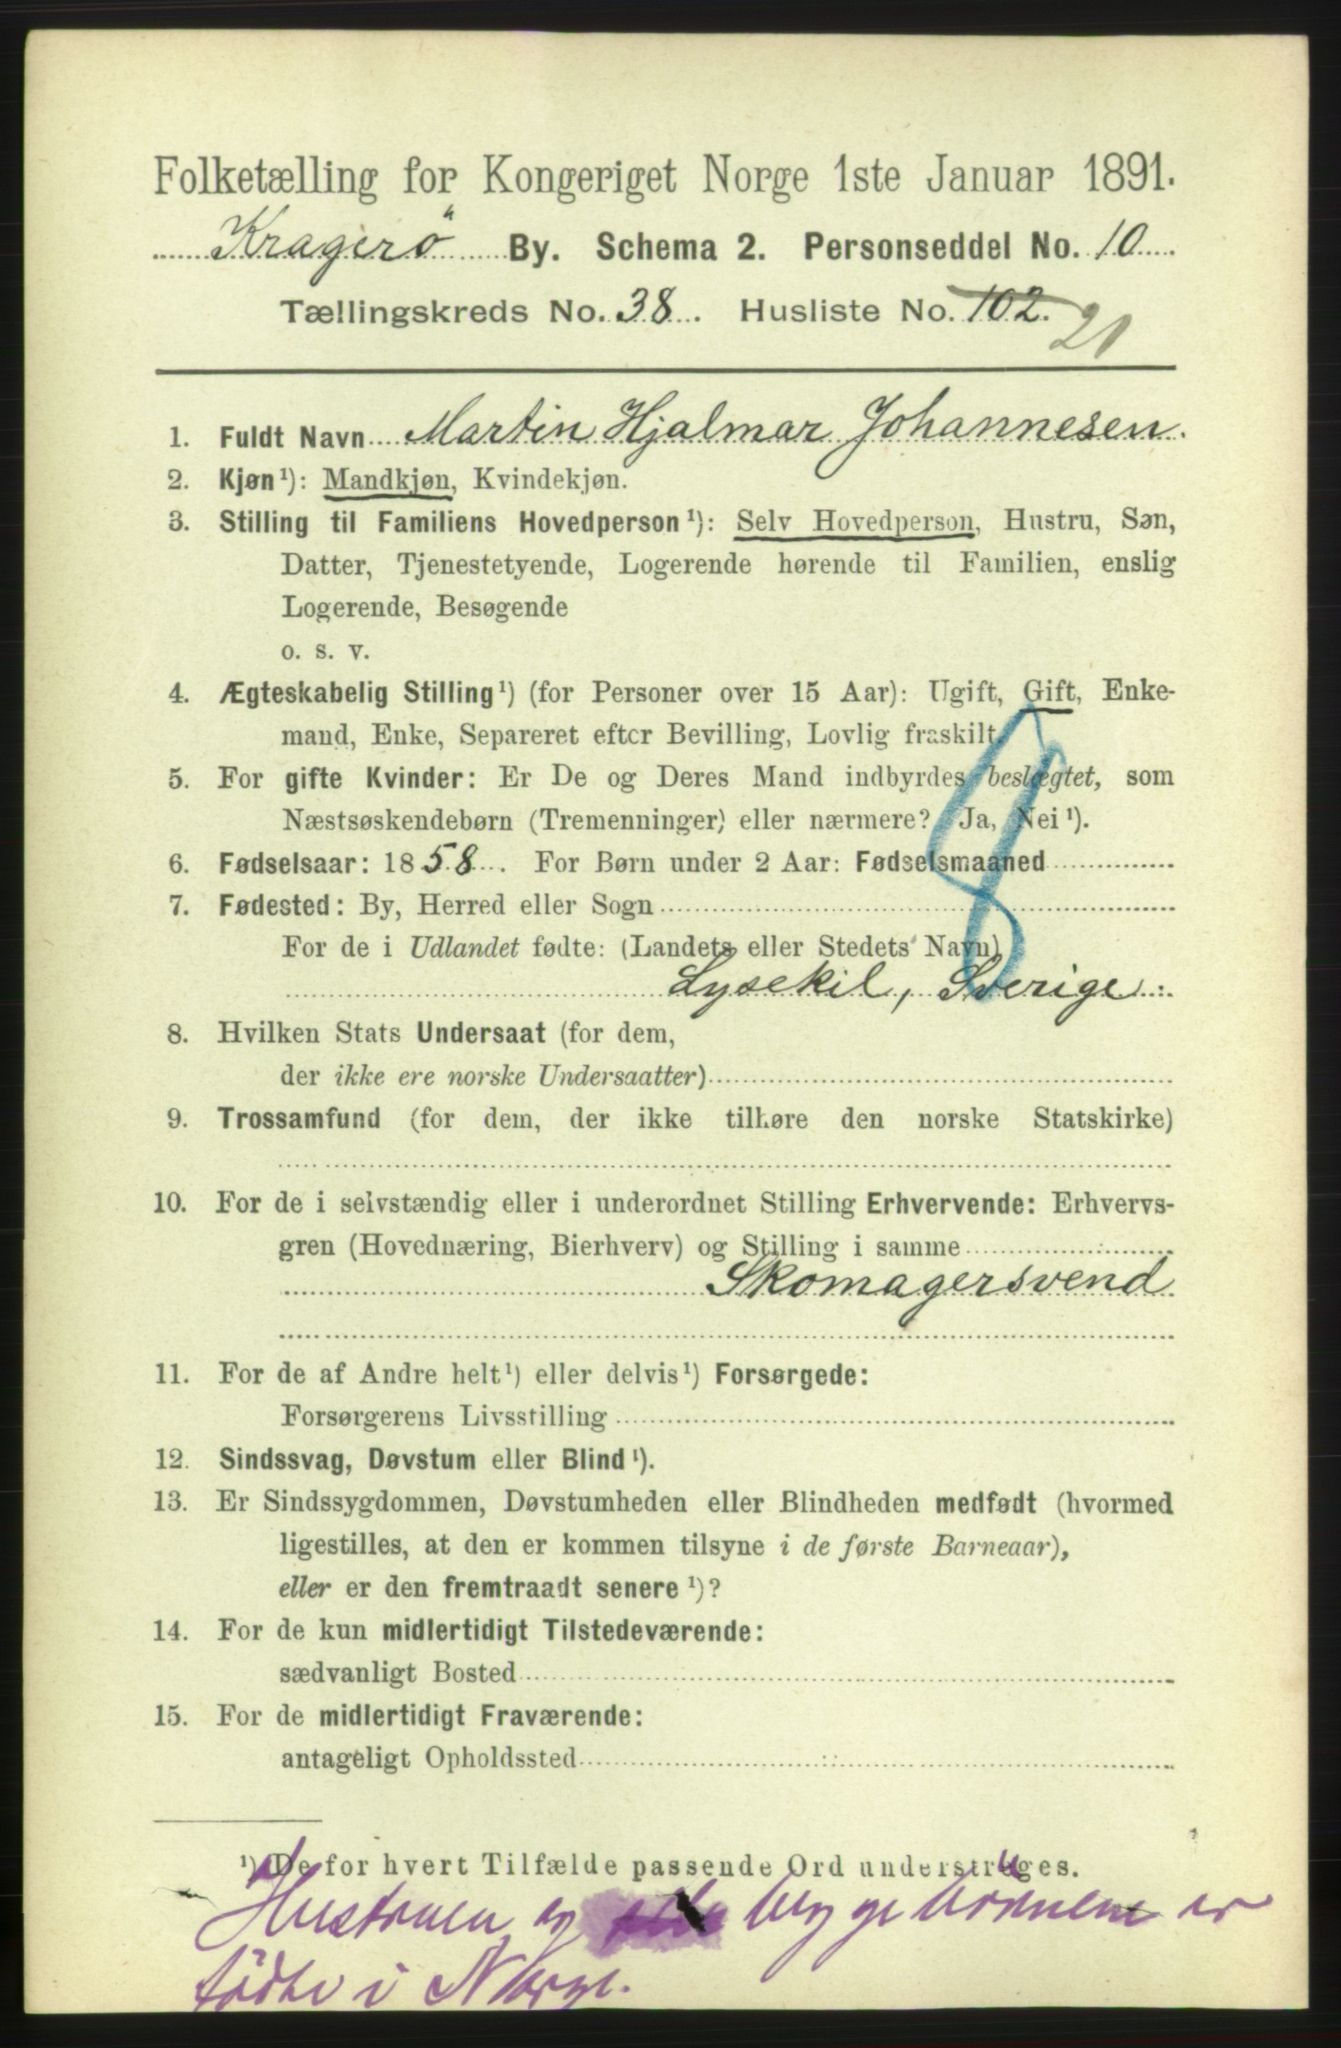 Folketælling for Kongeriget Norge 1ste Januar 1891.
Kragerö By. Schema 2. Personseddel No. 10
Tællingskreds No. 38. Husliste No. 102.
21
1. Fuldt Navn Martin Hjalmar Johannesen.
2. Kjøn¹): Mandkjøn, Kvindekjøn.
3. Stilling til Familiens Hovedperson¹): Selv Hovedperson, Hustru, Søn,
Datter, Tjenestetyende, Logerende hørende til Familien, enslig
Logerende, Besøgende
o. s. v.
4. Ægteskabelig Stilling¹) (for Personer over 15 Aar): Ugift, Gift, Enke-
mand, Enke, Separeret efter Bevilling, Lovlig fraskilt.
5. For gifte Kvinder: Er De og Deres Mand indbyrdes beslægtet, som
Næstsøskendebørn (Tremenninger) eller nærmere? Ja, Nei¹).
6. Fødselsaar: 1858. For Børn under 2 Aar: Fødselsmaaned
7. Fødested: By, Herred eller Sogn
For de i Udlandet fødte: (Landets eller Stedets Navn)
Lysekil, Sverige
8. Hvilken Stats Undersaat (for dem,
der ikke ere norske Undersaatter)
9. Trossamfund (for dem, der ikke tilhøre den norske Statskirke)
10. For de i selvstændig eller i underordnet Stilling Erhvervende: Erhvervs-
gren (Hovednæring, Bierhverv) og Stilling i samme
Skomagersvend
11. For de af Andre helt¹) eller delvis¹) Forsørgede:
Forsørgerens Livsstilling
12. Sindssvag, Døvstum eller Blind¹).
13. Er Sindssygdommen, Døvstumheden eller Blindheden medfødt (hvormed
ligestilles, at den er kommen tilsyne i de første Barneaar),
eller er den fremtraadt senere¹)?
14. For de kun midlertidigt Tilstedeværende:
sædvanligt Bosted
15. For de midlertidigt Fraværende:
antageligt Opholdssted
¹) De for hvert Tilfælde passende Ord understreges.
Hustruen og begge börnene er
födte i Norge.